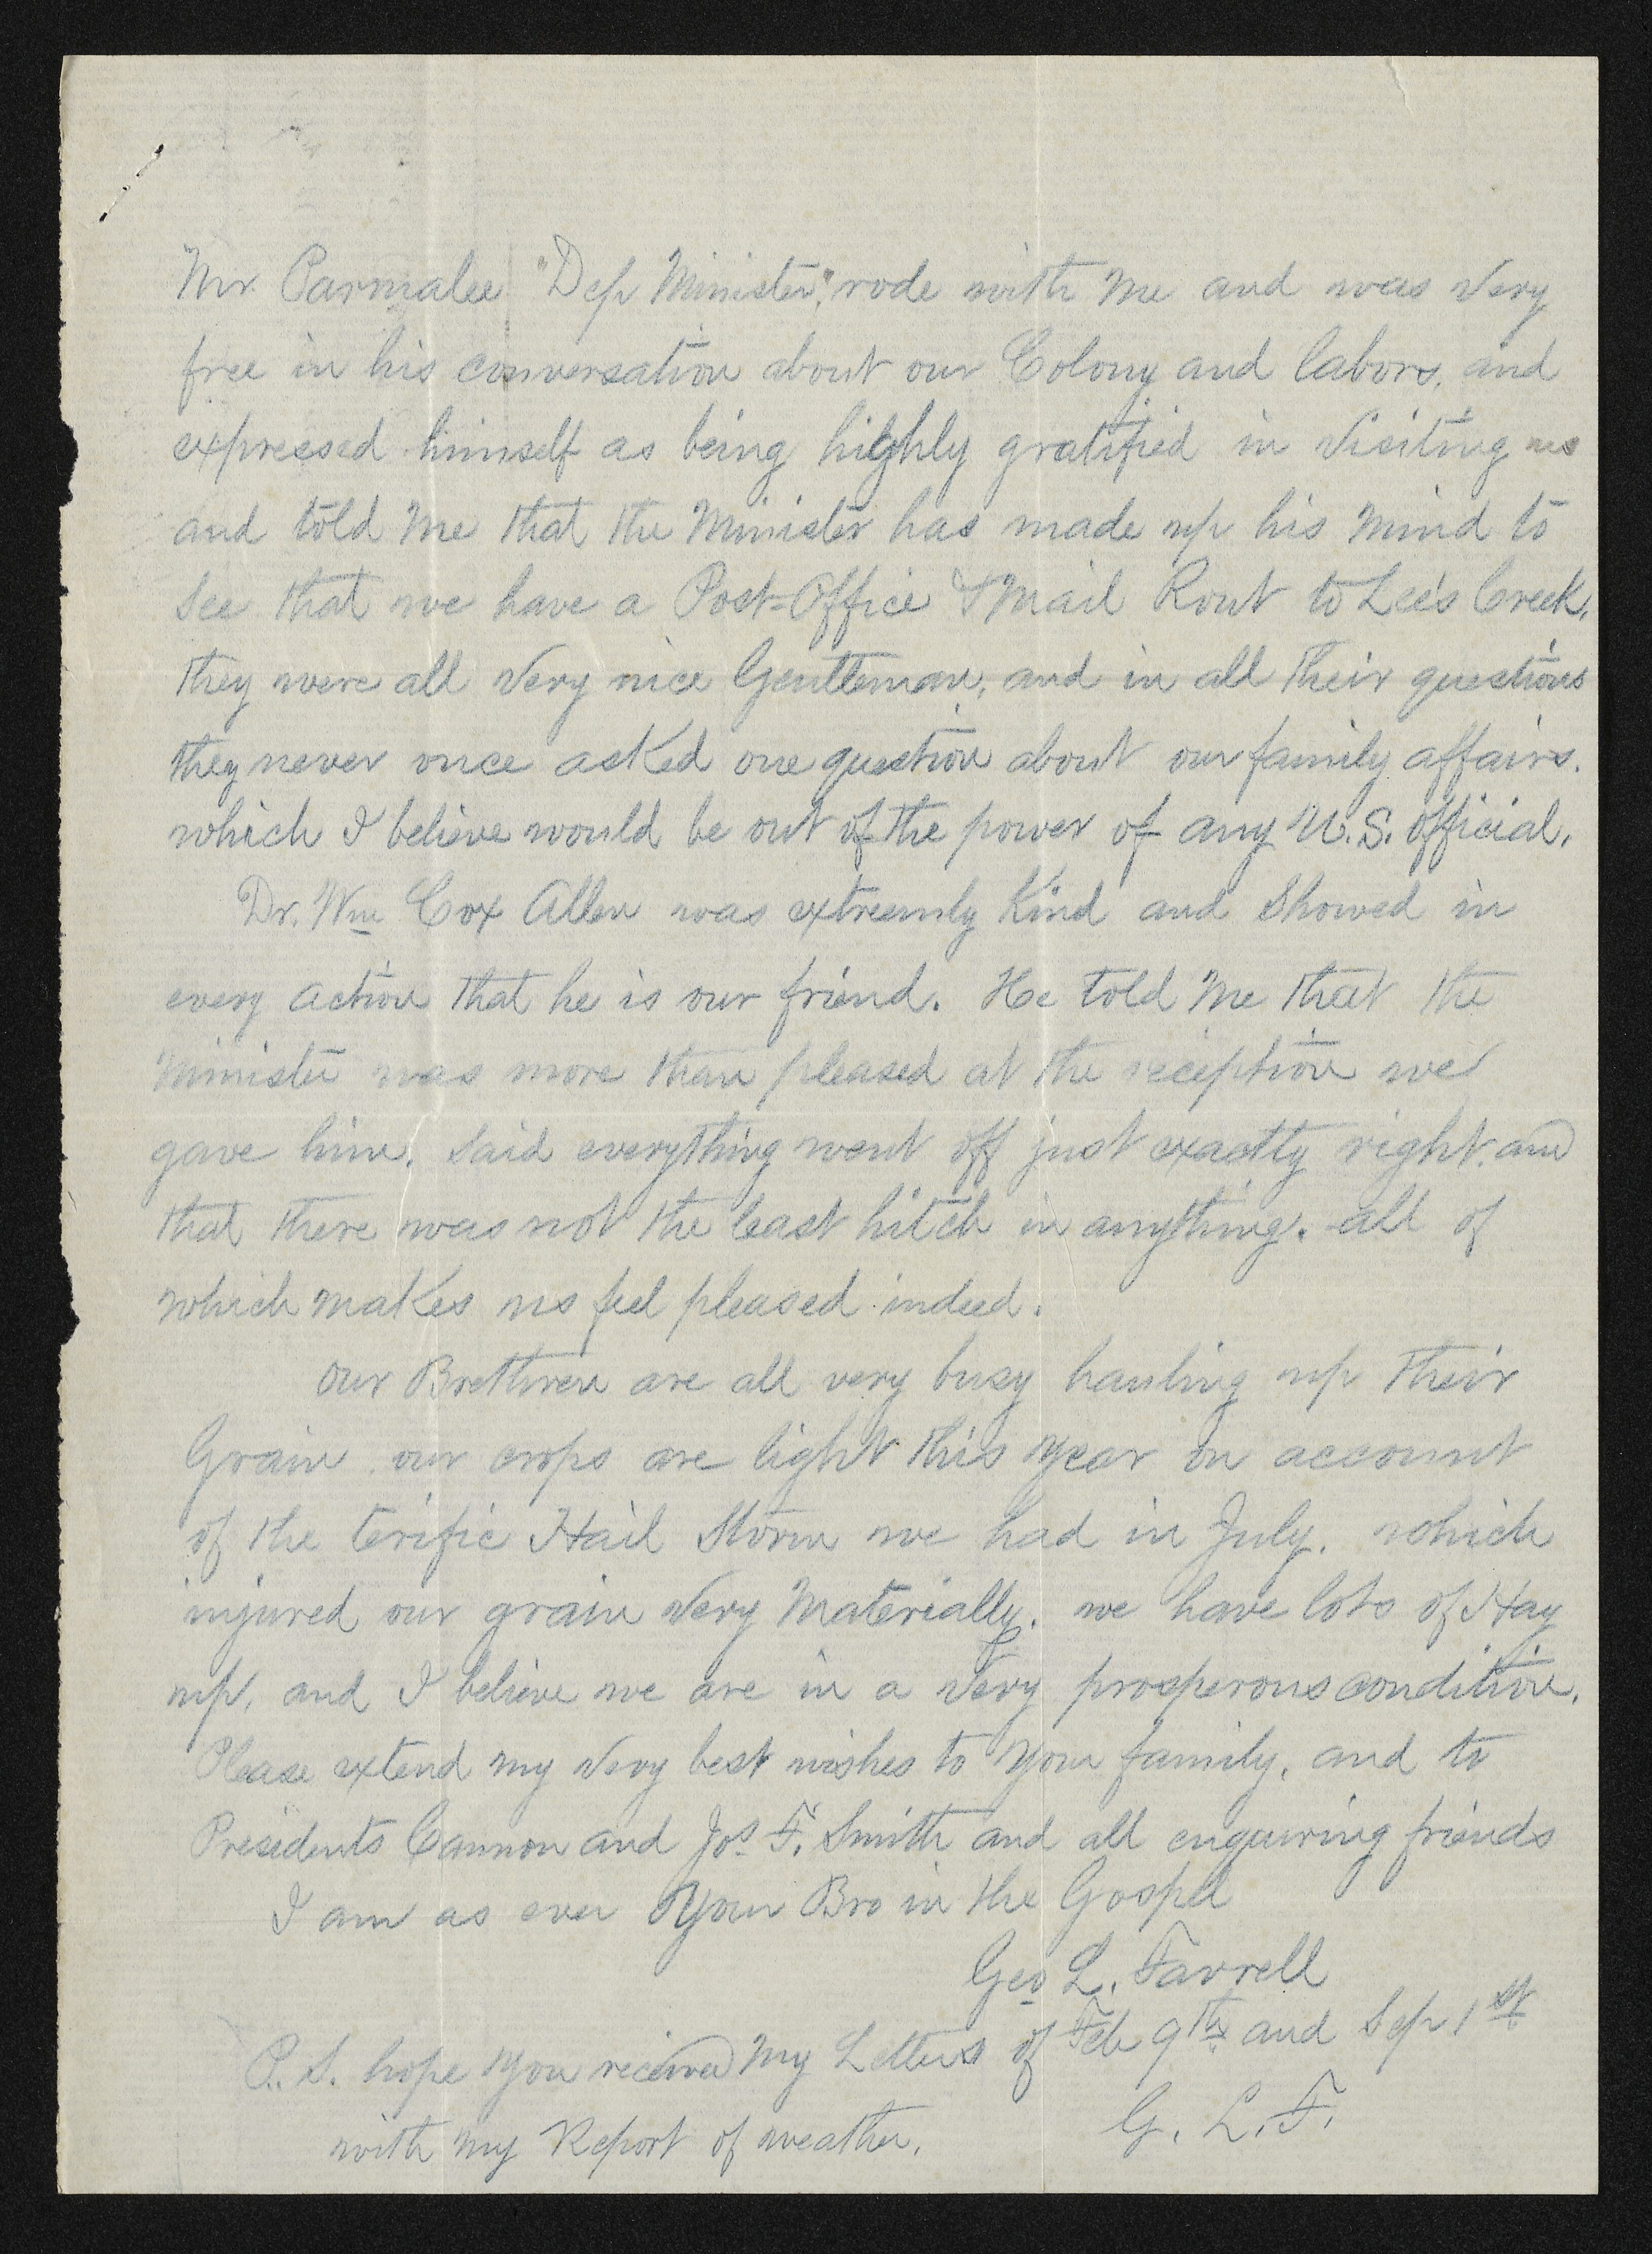 Mr. Parmalee "Dep Minister", rode with me and was Very
free in his conversation about our Colony and labors, and
expressed himself as being highly gratified in Visiting us
and told Me that the Minister has made up his Mind to
See that we have a Post-Office & Mail Rout to Lee's Creek,
they were all Very nice Gentleman, and in all their questions
they never once asked one question about our family affairs.
which I believe would be out of the power of any U.S. official.
Dr. Wm Cox Allen was extreemly Kind and Showed in
every action that he is our friend. He told Me that the
Minister was more than pleased at the reception we
gave him. Said everything went off just exactly right. and
that there was not the least hitch in anything. all of
which makes us feel pleased indeed.
Our Brethren are all very busy hauling up their
Grain our crops are light this year on account
of the terific Hail Storm we had in July. which
injured our grain Very Materially. we have lots of Hay
up, and I believe we are in a Very prosperous condition.
Please extend my Very best wishes to your family, and to
Presidents Cannon and Jos F. Smith and all enquiring friends
I am as ever Your Bro in the Gospel
Geo L. Farrell
P.S. hope you received My Letters of Feb 9th and Sep 1st
with my Report of weather. G. L. F.